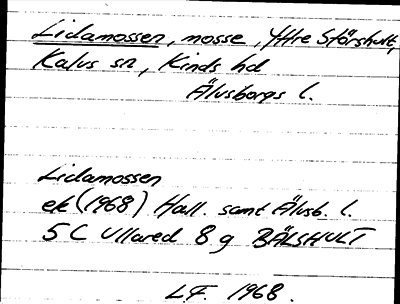 Lidamossen, mosse, Yttre Störshult,
Kalvs sn, Kinds hd
Älvsborgs l.
Lidamossen
ek (1968) Hall. samt Älvsb. l.
5 C Ullared 8 g BÄLSHULT
L.F. 1968.